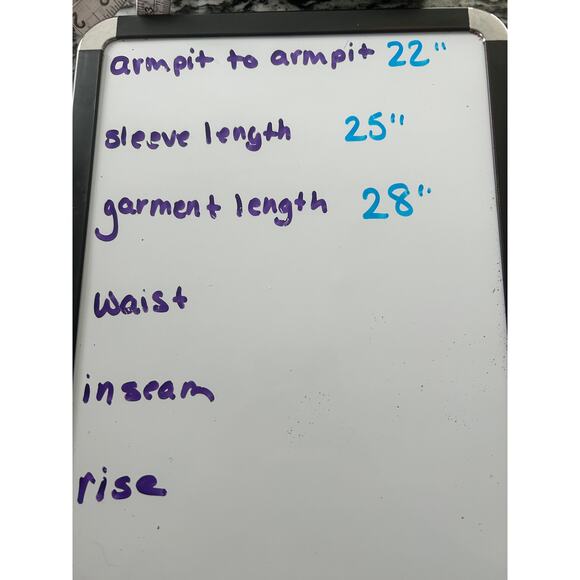 armpit to armpit 22"
sleeve length 25"
garment length 28"
Waist
inseam
rise